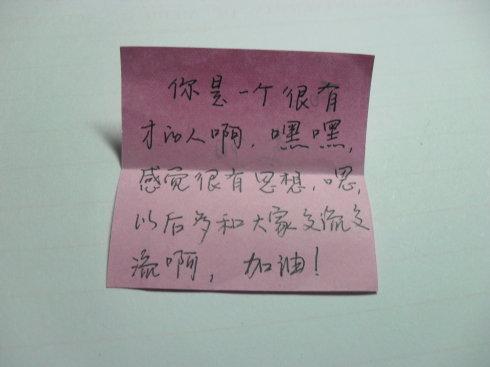 你是一个很有
才的人啊，嘿嘿，
感觉很有思想，嗯，
以后多和大家交流交
流啊，加油！